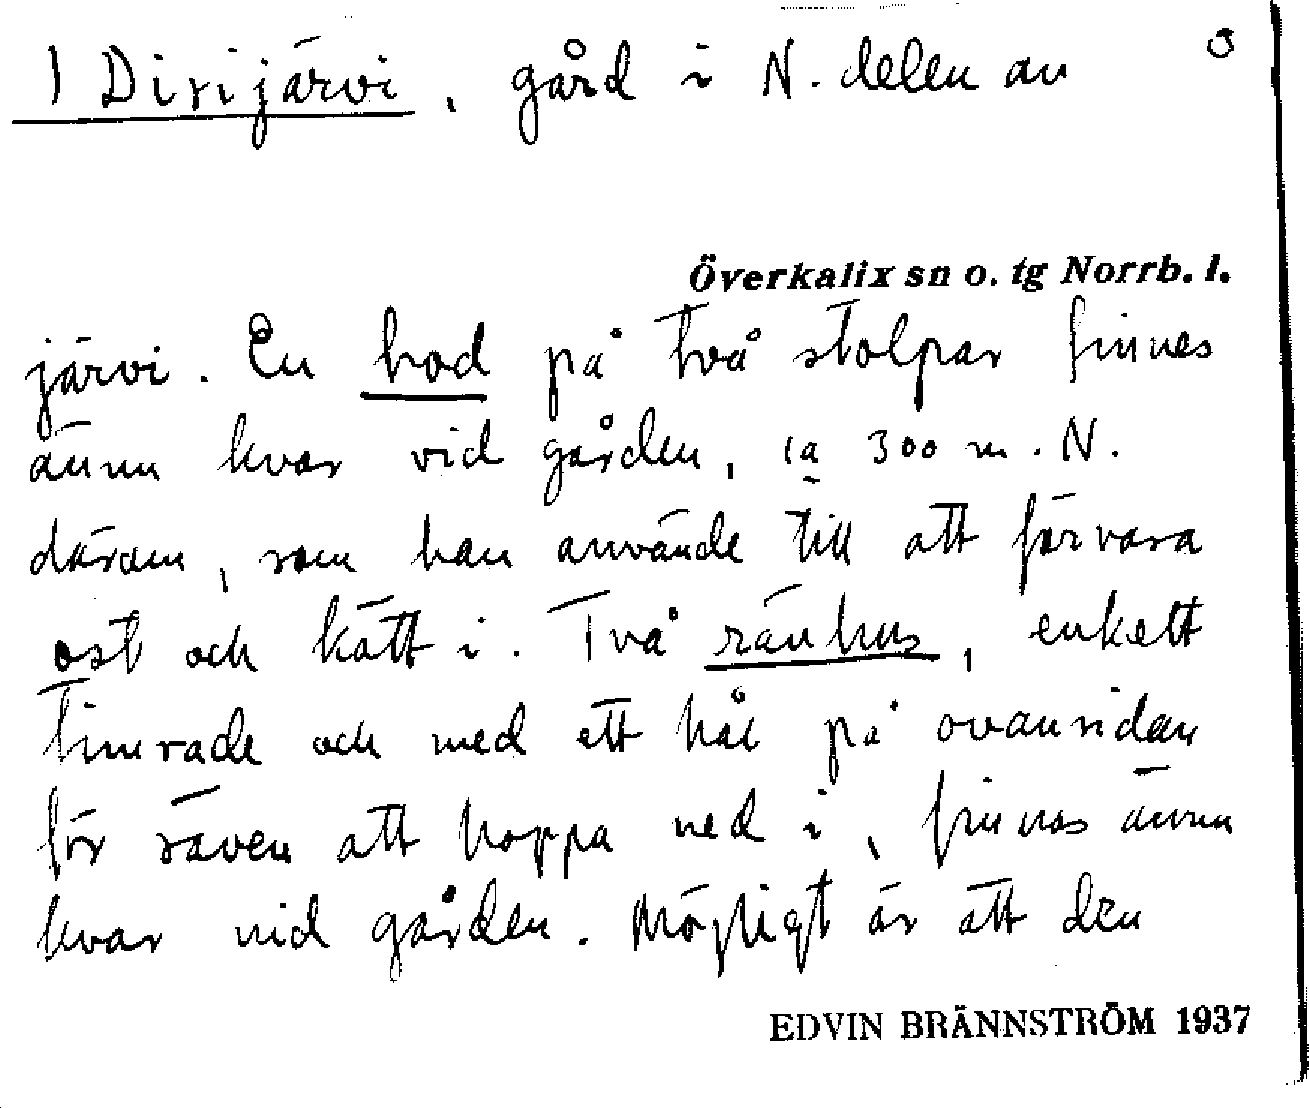 1 Disijärvi, gård i N. delen av
Överkalix sn o. tg Norrb. l.
järvi. En bod på två stolpar finnes
ännu kvar vid gården, ca 300 m. N.
därom, som han använde till att förvara
ost och kött i. Två rävhus, enkelt
timrade och med ett hål på ovansidan
för räven att hoppa ned i, finnas ännu
kvar vid gården. Möjligt är att den
EDVIN BRÄNNSTRÖM 1937